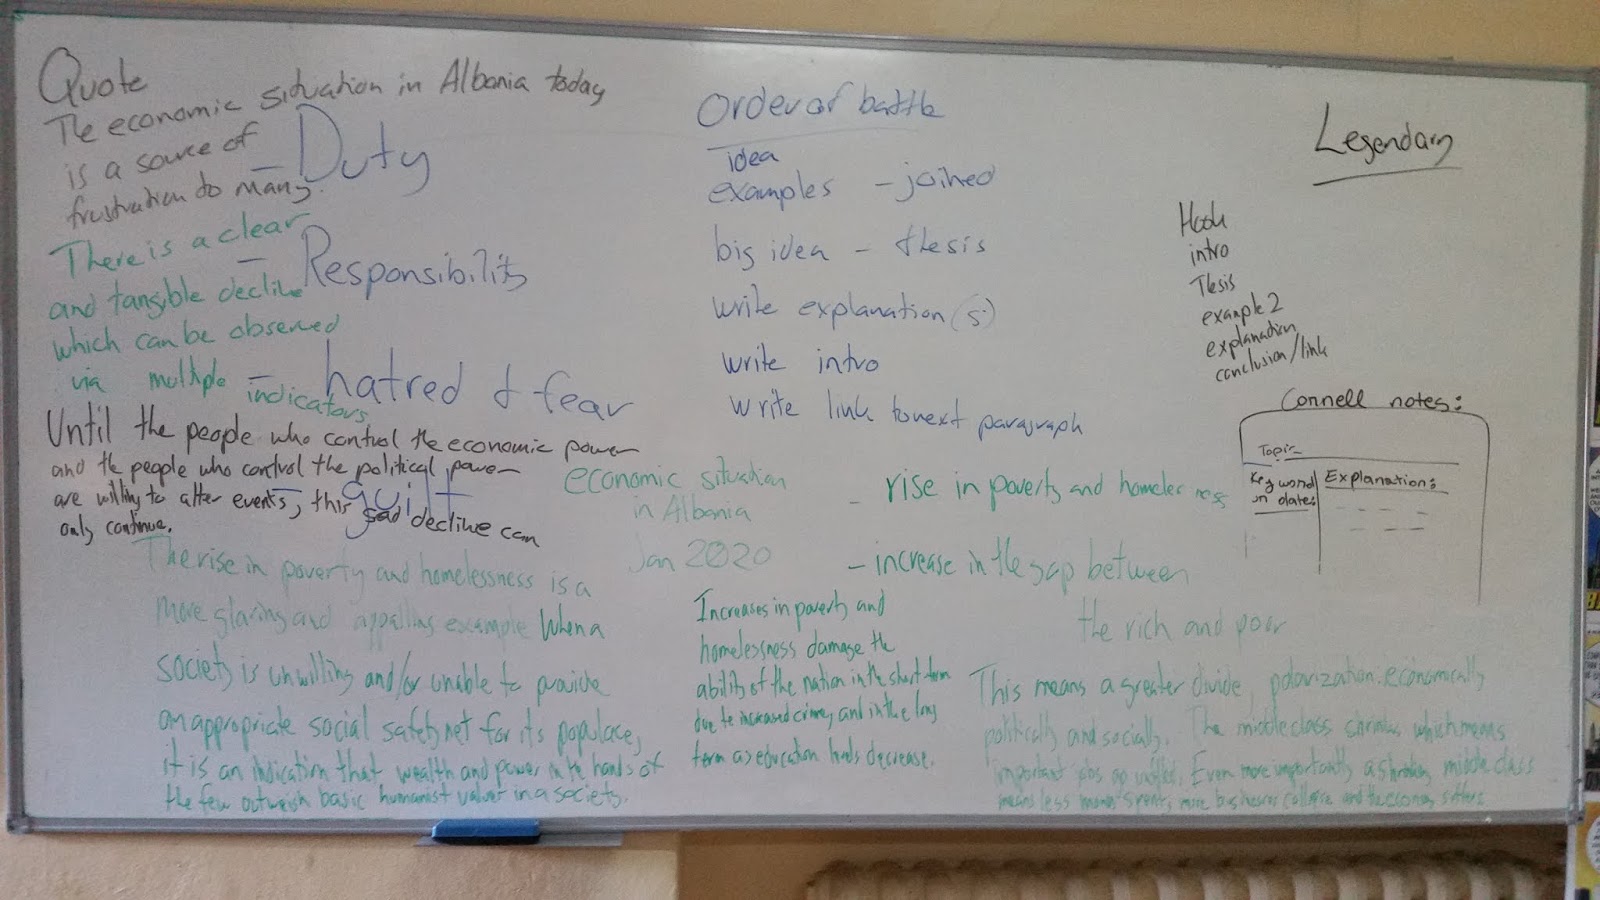 Quote
The economic situation in Albania today
is a source of
frustration to many.
There is a clear
and tangible decline
which can be observed
via multiple indicators
– Duty
– Responsibility
– hatred & fear
guilt
Until the people who control the economic power
and the people who control the political power
are willing to alter events, this sad decline can
only continue.
The rise in poverty and homelessness is a
more glaring and appalling example When a
society is unwilling and/or unable to provide
an appropriate social safety net for its populace,
it is an indication that wealth and power in the hands of
the few outweigh basic humanist values in a society.
Order of battle
idea
examples – joined
big idea – thesis
write explanation(s)
write intro
write link to next paragraph
economic situation
in Albania
Jan 2020
– rise in poverty and homelessness
– increase in the gap between
the rich and poor
Increases in poverty and
homelessness damage the
ability of the nation in the short term
due to increased crime, and in the long
term as education levels decrease.
This means a greater divide, polarization: economically
politically and socially. The middle class shrinks which means
important jobs go unfilled. Even more importantly a shrinking middle class
means less money spent, more businesses collapse and the economy suffers
Legendary
Hook
intro
Thesis
example 2
explanation
conclusion/link
Connell notes:
Topic
Key word Explanation:
on dates: